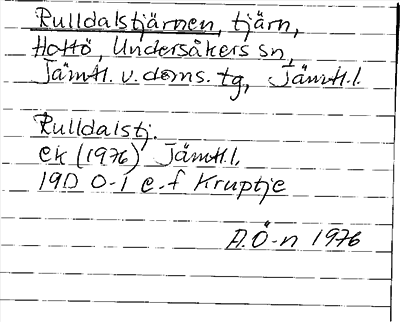 Rulldalstjärnen, tjärn,
Hottö, Undersåkers sn,
Jämtl. v. doms. tg, Jämtl. l.
Rulldalstj.
ek (1976) Jämtl. l.
19D 0-1 e-f Kruptje
A.Ö-n 1976